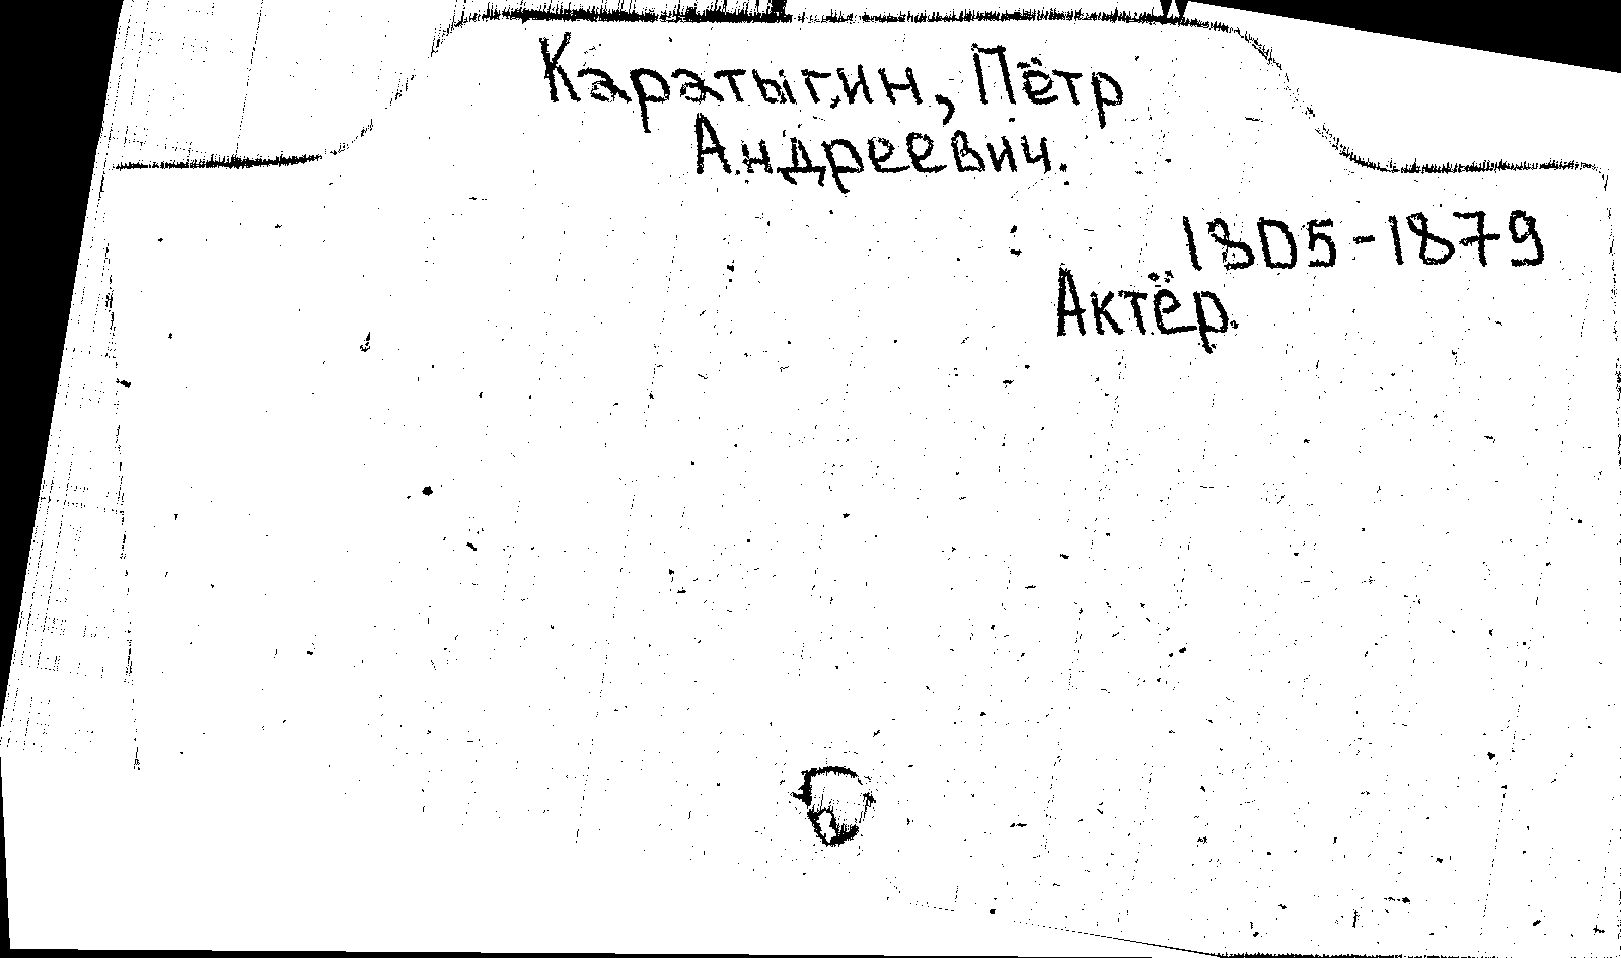 Каратыгин, Пётр
Андреевич.
1805-1879
Актёр.